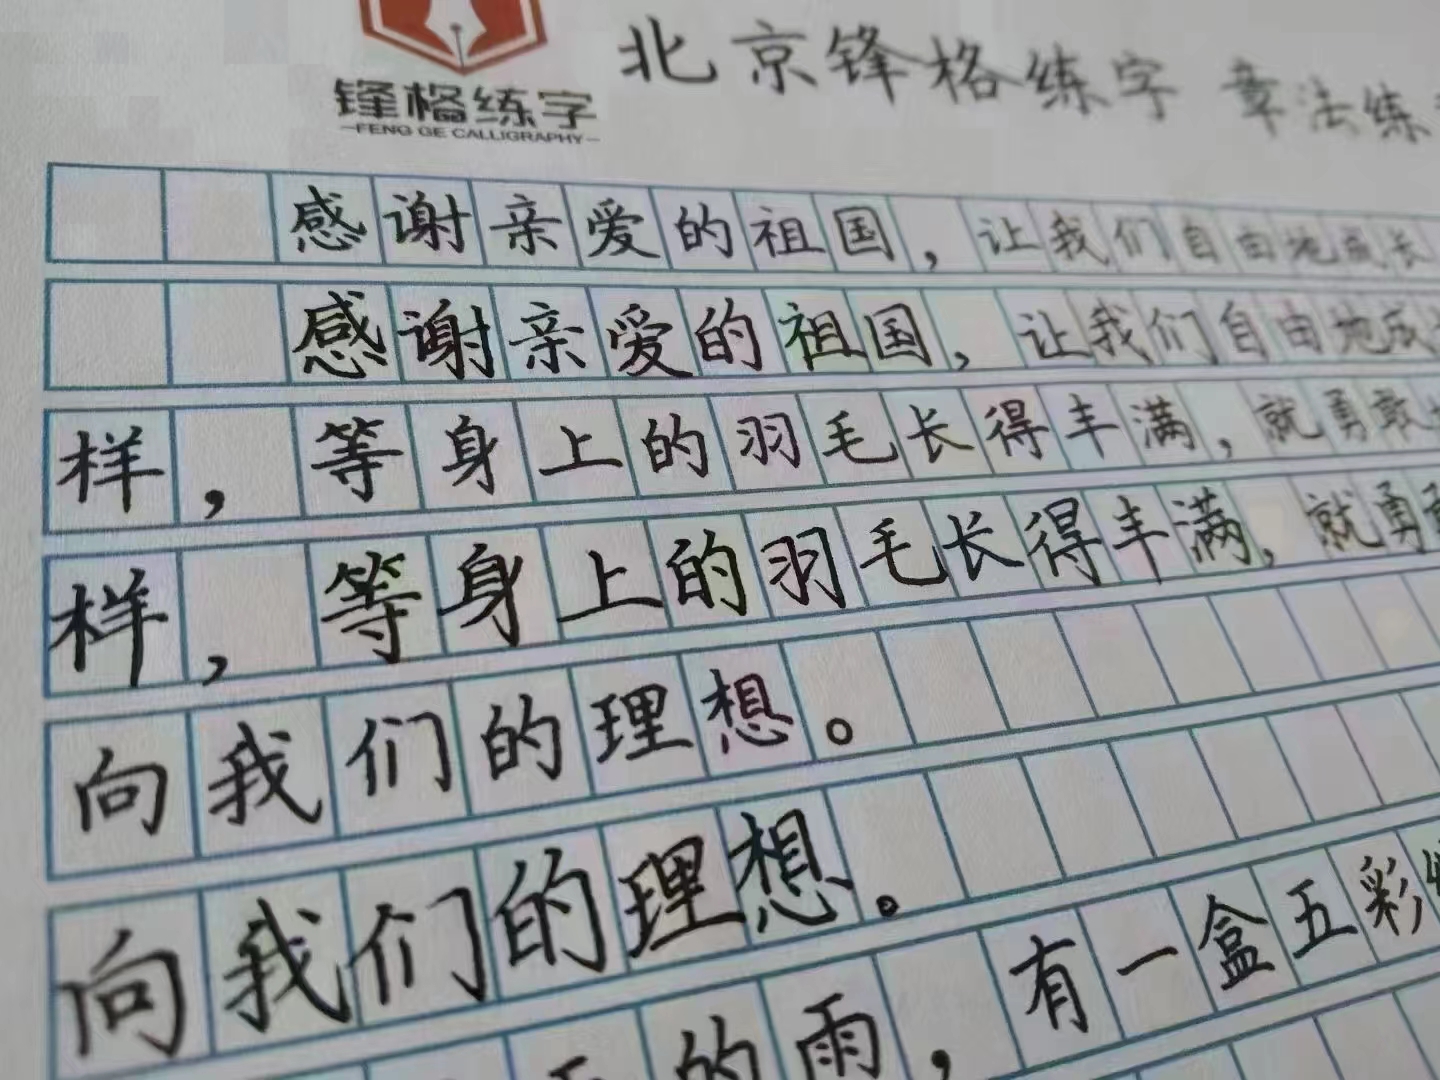 锋格练字
FENG GE CALLIGRAPHY
北京锋格练字 章法练
感谢亲爱的祖国，让我们自由地成长
感谢亲爱的祖国，让我们自由地成
样，等身上的羽毛长得丰满，就勇敢
样，等身上的羽毛长得丰满，就勇
向我们的理想。
向我们的理想。
的雨，有一盒五彩